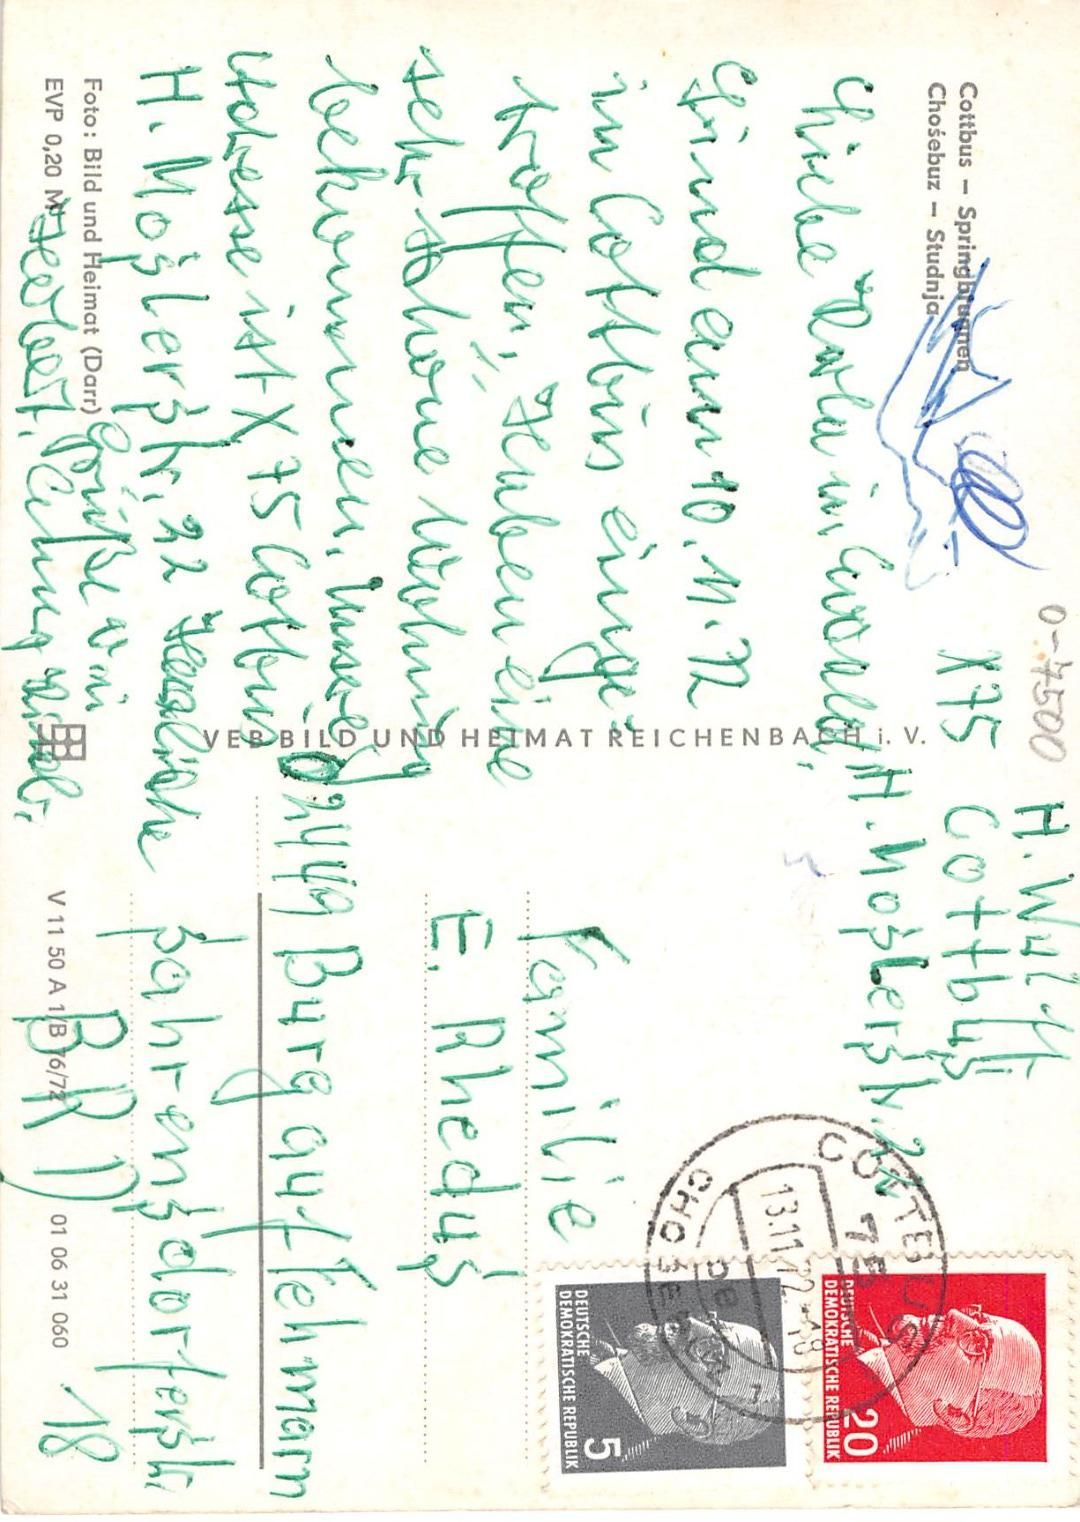 Cottbus – Springbrunnen
Chośebuz – Studnja
0-7500
H. Wulff
X 75 Cottbus
H. Moßlerstr. 22
Liebe Karla
Sind am 10. 11. 72
in Cottbus einge-
troffen, Haben eine
sehr schöne Wohnung
bekommen. Unsere
Adresse ist X 75 Cottbus
H. Moßlerstr. 22 Herzliche
Grüße von
Foto: Bild und Heimat (Darr)
EVP 0,20 M
VEB BILD UND HEIMAT REICHENBACH i. V.
V 11 50 A 1/B 76/72 01 06 31 060
Familie
E. Rhedus
2449 Burg auf Fehmarn
Bahrensdorferstr.
18
BRD
COTTBUS
CHOŚEBUZ
75
13.11.72-18
DEUTSCHE
DEMOKRATISCHE REPUBLIK
20
DEUTSCHE
DEMOKRATISCHE REPUBLIK
5